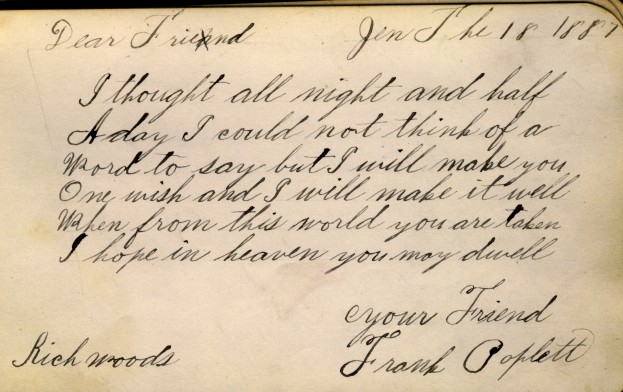 Dear Friend Jen The 18 1887
I thought all night and half
A day I could not think of a
Word to say but I will make you
One wish and I will make it well
When from this world you are taken
I hope in heaven you may dwell
your Friend
Rich woods Frank Poplett